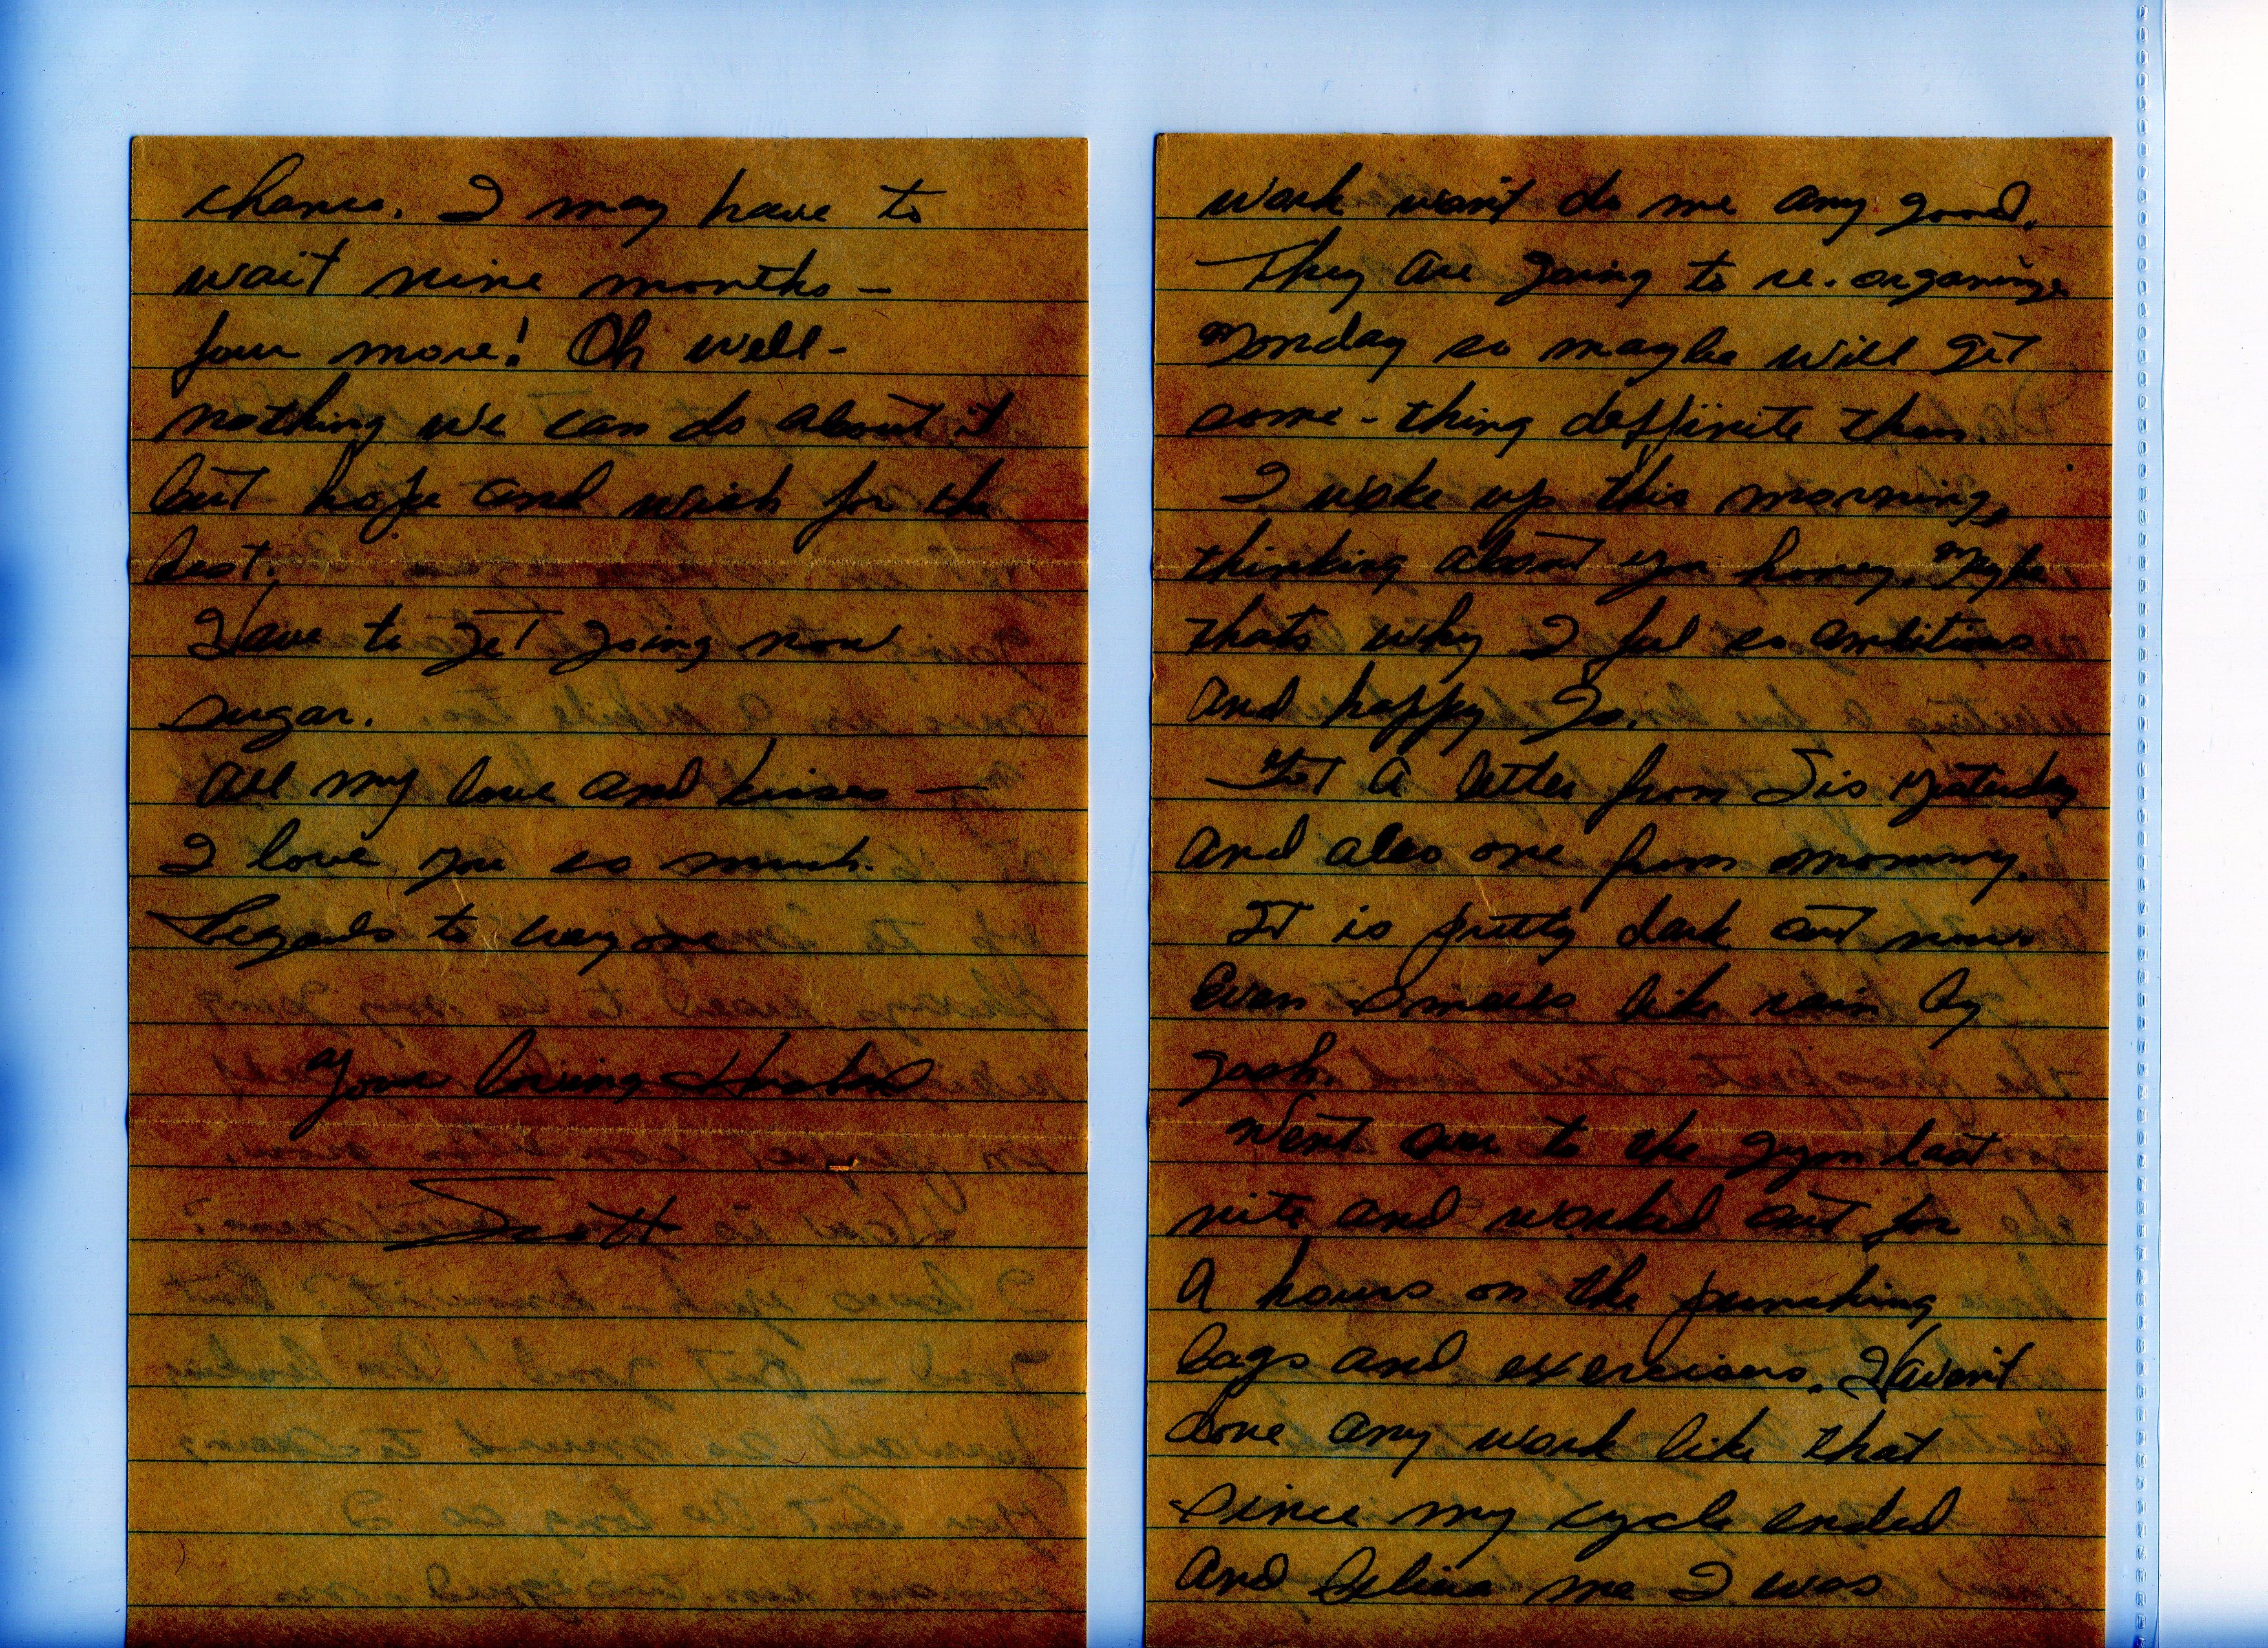 chance. I may have to
wait nine months -
four more! Oh well -
nothing we can do about it
but hope and wish for the
best.
Have to get going now
sugar.
All my love and kisses —
I love you so much.
Regards to everyone
Your loving Husband
Scott
work won't do me any good.
They are going to re-organize
Monday so maybe will get
some-thing deffinite then.
I woke up this morning,
thinking about you honey. Maybe
thats why I feel so ambitious
and happy Jo.
Got a letter from Sis yesterday
and also one from mommy.
It is pretty dark out now
Even smells like rain by
gosh.
Went over to the gym last
nite and worked out for
a hours on the punching
bags and exercisers. Haven't
done any work like that
since my cycle ended
and believe me I was